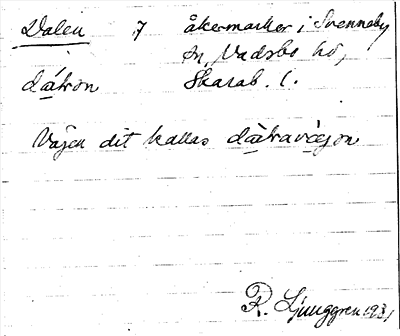 Dalen 7 åkermarker i Svenneby
sn, Vadsbo hd,
dàtron Skarab. l.
Vägen dit kallas dàtravägon
R. Ljunggren 1931